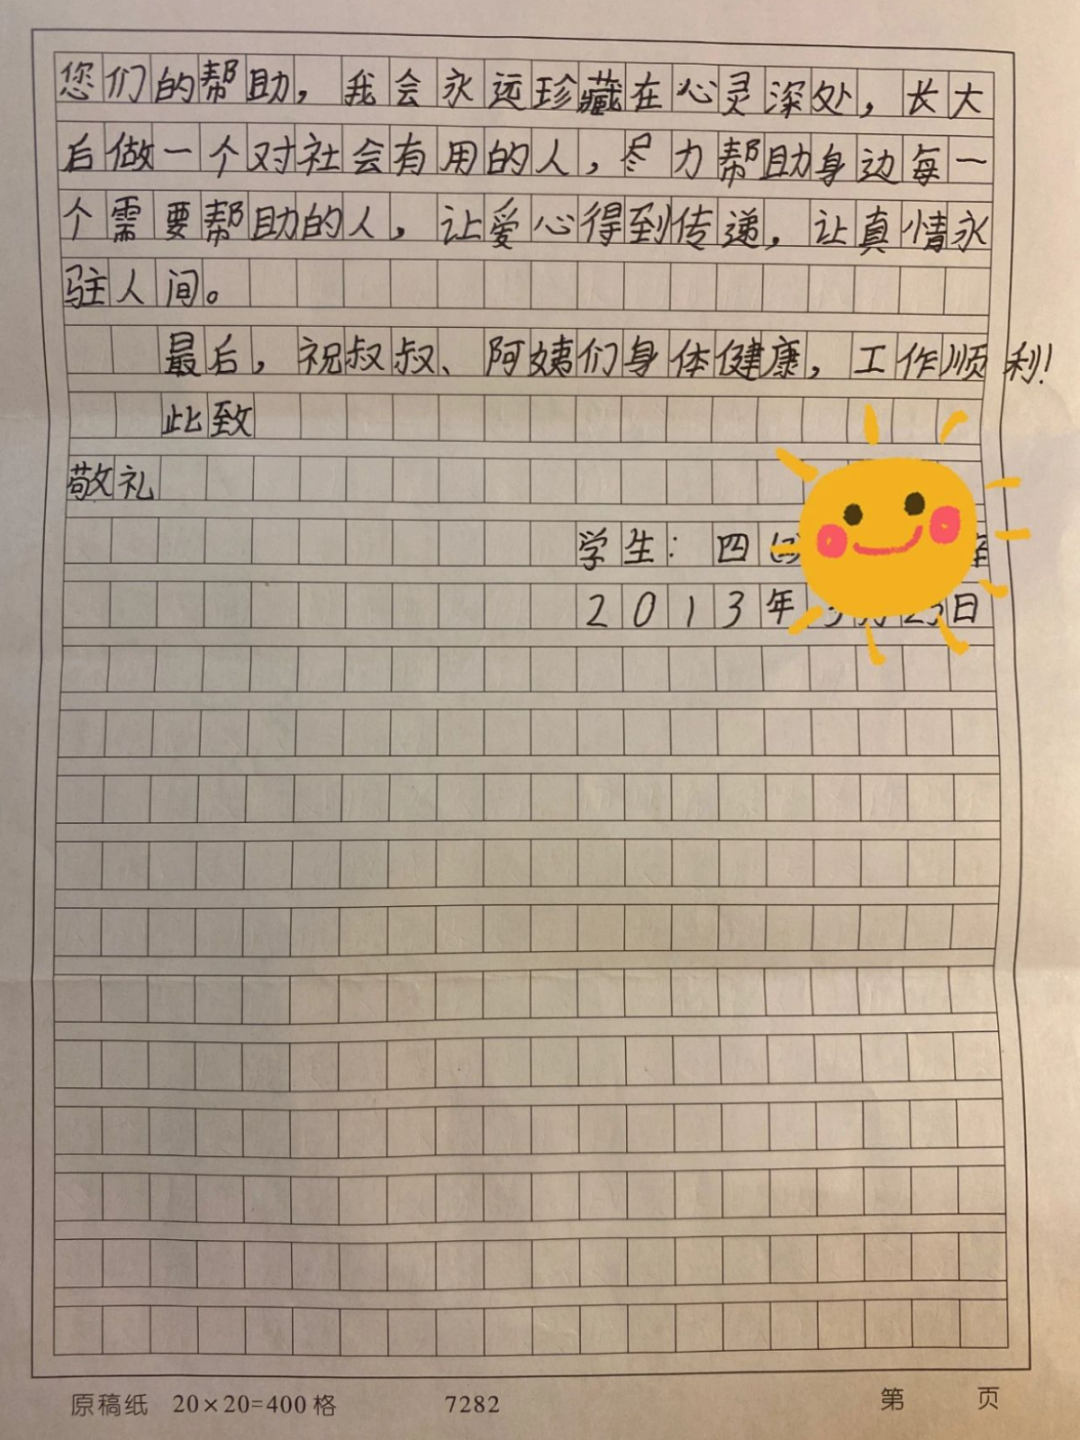 您们的帮助，我会永远珍藏在心灵深处，长大
后做一个对社会有用的人，尽力帮助身边每一
个需要帮助的人，让爱心得到传递，让真情永
驻人间。
最后，祝叔叔、阿姨们身体健康，工作顺利！
此致
敬礼
学生：四
2013年 日
原稿纸 20×20=400格 7282 第 页